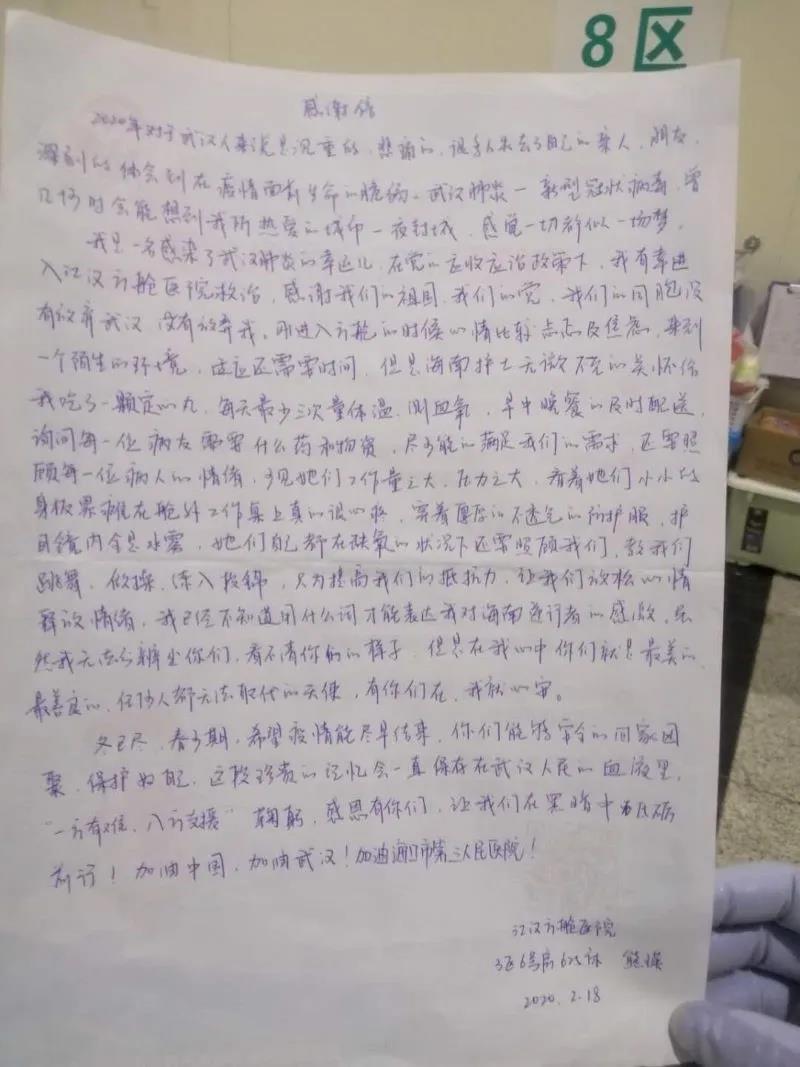 8区
感谢信
2020年对于武汉人来说是沉重的,悲痛的,很多人失去了自己的亲人,朋友,
深刻的体会到在疫情面前生命的脆弱。武汉肺炎一新型冠状病毒,曾
几何时会能想到我所热爱的城市一夜封城,感觉一切都似一场梦。
我是一名感染了武汉肺炎的幸运儿,在党的应收应治政策下,我有幸进
入江汉方舱医院救治,感谢我们的祖国,我们的党,我们的同胞没
有放弃武汉,没有放弃我。刚进入方舱的时候心情比较忐忑及焦急,来到
一个陌生的环境,适应还需要时间,但是海南护士无微不至的关怀给
我吃了一颗定心丸,每天最少三次量体温、测血氧,早中晚餐的及时配送,
询问每一位病友需要什么药和物资,尽可能的满足我们的需求,还需照
顾每一位病人的情绪,可见她们工作量之大,压力之大,看着她们小小的
身板累瘫在舱外工作桌上真的很心疼,穿着厚厚的不透气的防护服,护
目镜内全是水雾,她们自己都在缺氧的状况下还需照顾我们,教我们
跳舞、做操、,只为提高我们的抵抗力,让我们放松心情
释放情绪,我已经不知道用什么词才能表达我对海南逆行者的感激,虽
然我无法分辨出你们,看不清你们的样子,但是在我心中你们就是最美的、
最善良的、任何人都无法取代的天使,有你们在,我就心安。
冬已尽,春可期,希望疫情能尽早结束,你们能够安全的回家团
聚,保护好自己,这段珍贵的记忆会一直保存在武汉人民的血液里,
“一方有难,八方支援”鞠躬,感恩有你们,让我们在黑暗中砥砺
前行!加油中国,加油武汉!加油海口市第三人民医院!
江汉方舱医院
3区6号房625床 熊
2020.2.18